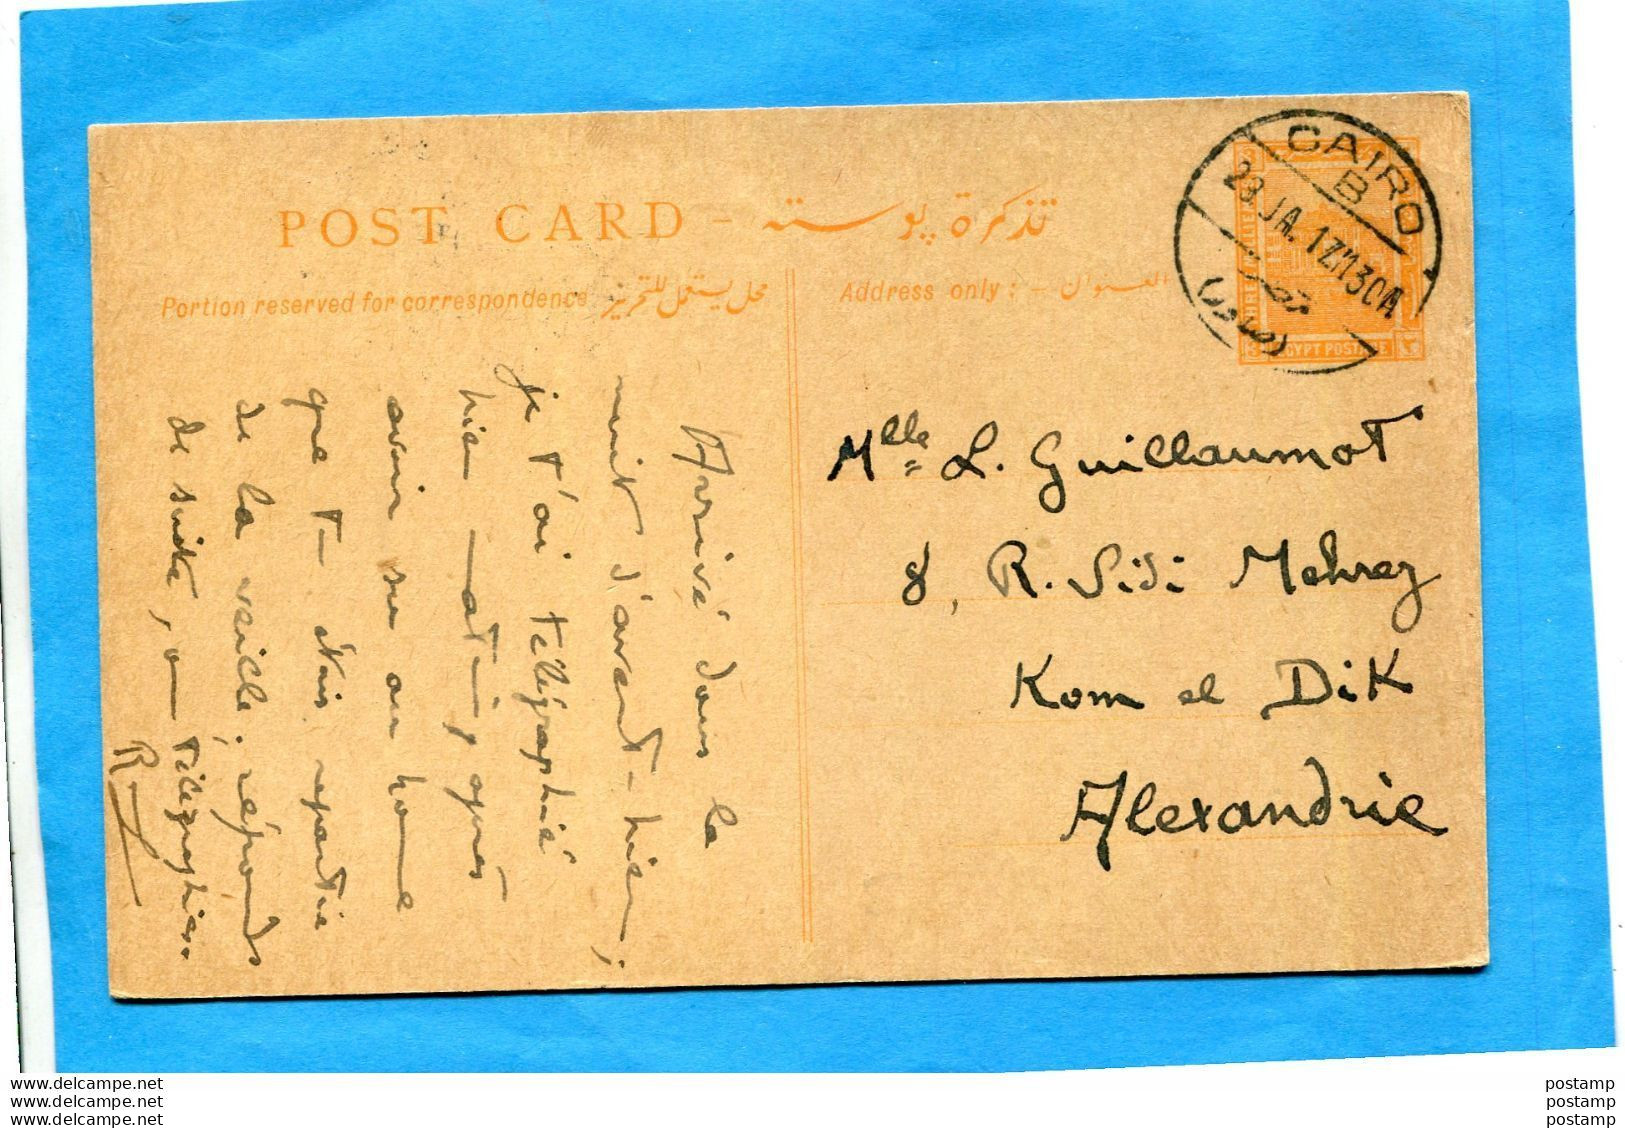 POST CARD - تذكرة پوسته
Portion reserved for correspondence محل يستعمل للتحرير
Address only : - العنوان
CAIRO
B
23.JA.17
EGYPT POSTAGE
Mlle L. Guillaumot
8, R. Sidi Mehrez
Kom el Dik
Alexandrie
Arrivé dans la
nuit d'avant-hier,
je t'ai télégraphié
hier matin, après
avoir su au home
que tu étais repartie
de la veille. réponds
de suite, ou télégraphies.
R
www.delcampe.net
www.delcampe.net
www.delcampe.net
postamp
postamp
postamp